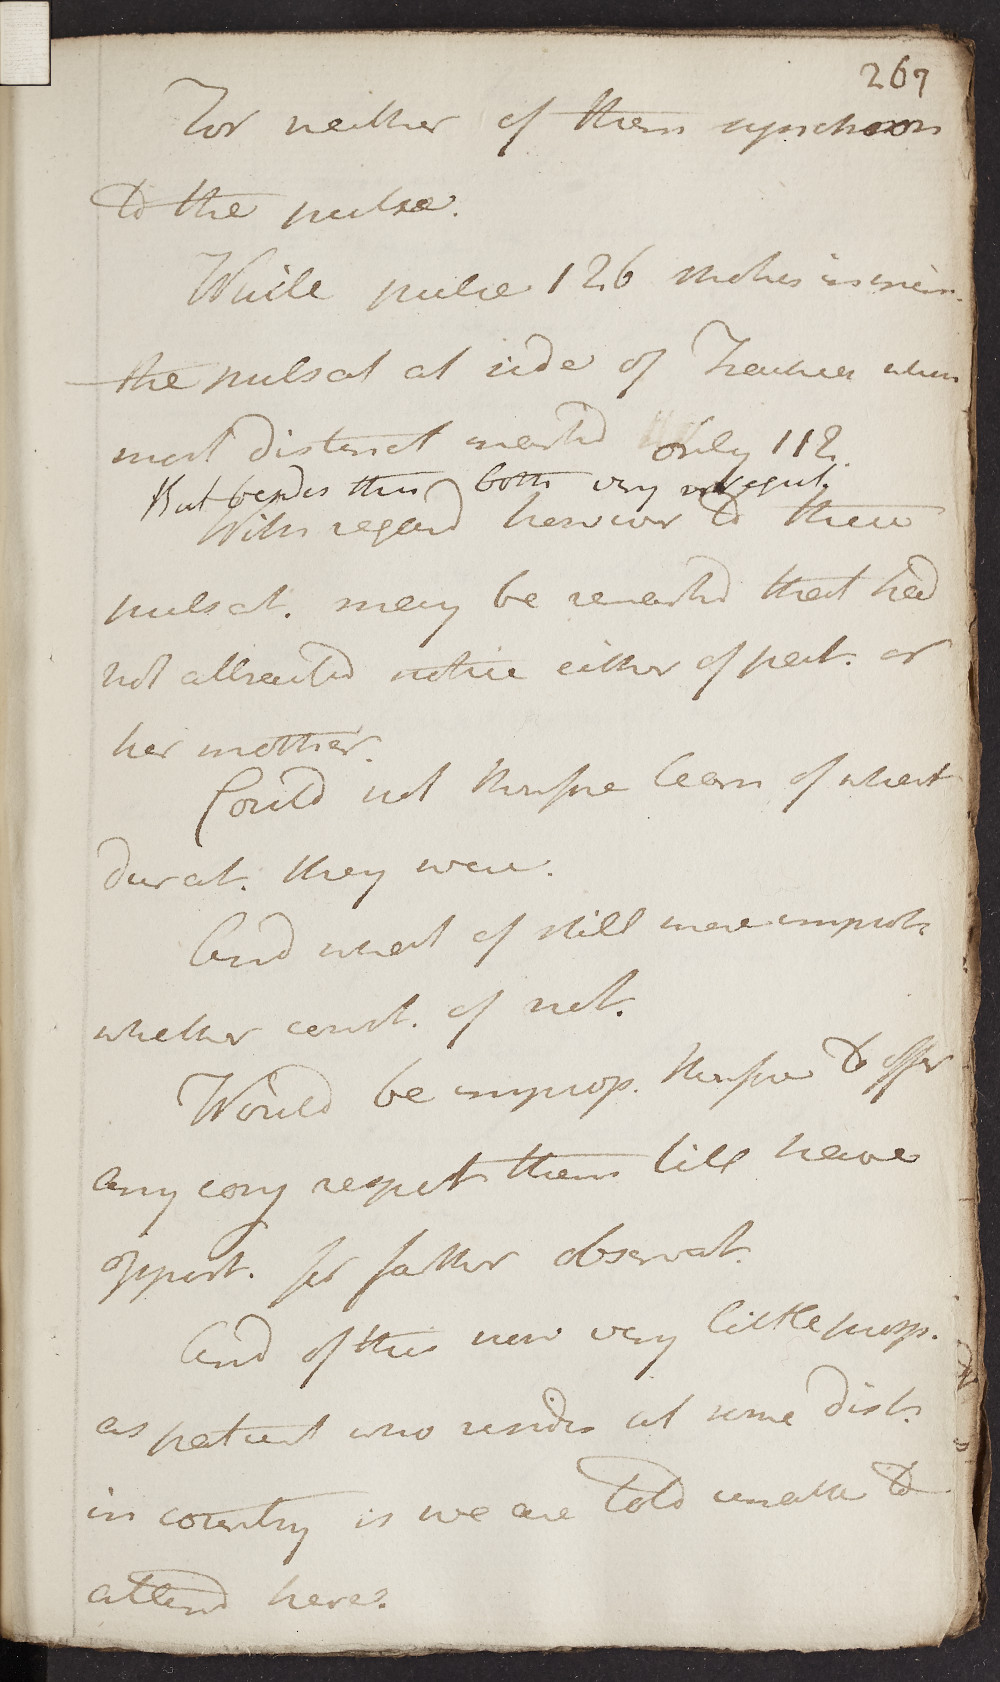 267
For neither of them synchron
to the pulse.
While pulse 126 strokes in min.
the pulsat at side of Trachea when
most distinct marked only 112.
But besides this both very irregul.
With regard however to these
pulsat. may be remarked that had
not attracted notice either of pat. or
her mother.
Could not therefore learn of what
durat. they were.
And what of still more import.
whether const. or not.
Would be improp. therefore to offer
any conj respect them till have
opport. for farther observat.
And of this now very little prosp.
as patient who resides at some dist.
in country is we are told unable to
attend here.